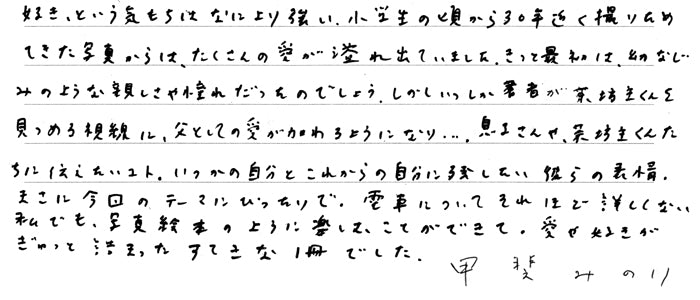 好き、という気もちはなにより強い、小学生の頃から30年近く撮りため
てきた写真からは、たくさんの愛が溢れ出ていました。きっと最初は、幼なじ
みのような親しさや憧れだったのでしょう。しかしいつしか著者が茶坊主くんを
見つめる視線に、父としての愛が加わるようになり…。息子さんや、茶坊主くんた
ちに伝えたいコト、いつかの自分とこれからの自分に残したい彼らの表情。
まさに今回のテーマにぴったりで。電車についてそれほど詳しくない
私でも、写真絵本のように楽しむことができて。愛や好きが
ぎゅっと詰まったすてきな1冊でした。
甲斐みのり